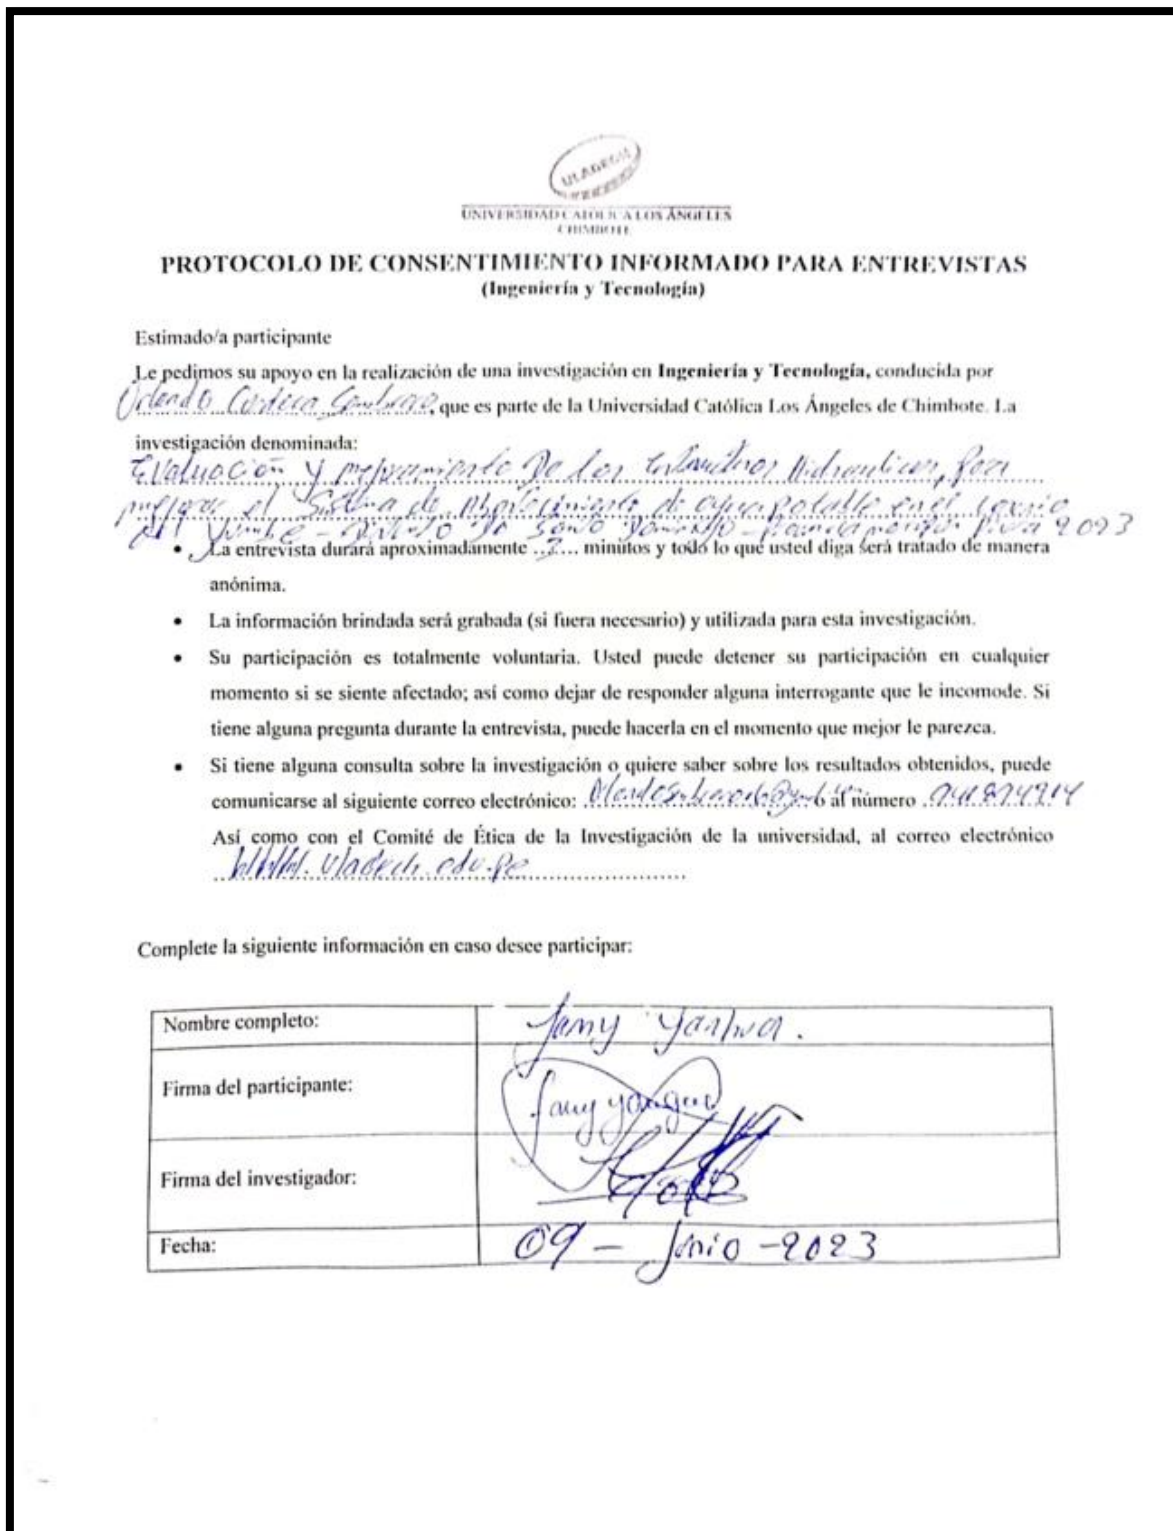 ULADECH
UNIVERSIDAD CATÓLICA LOS ÁNGELES
CHIMBOTE
PROTOCOLO DE CONSENTIMIENTO INFORMADO PARA ENTREVISTAS
(Ingeniería y Tecnología)
Estimado/a participante
Le pedimos su apoyo en la realización de una investigación en Ingeniería y Tecnología, conducida por
Orlando, que es parte de la Universidad Católica Los Ángeles de Chimbote. La
investigación denominada:
Evaluación y mejoramiento De las Hidraulicas, para
mejorar el Sistema de Abastecimiento de agua potable en el
Distrito De Santo Domingo - 2023
• La entrevista durará aproximadamente ..... minutos y todo lo que usted diga será tratado de manera
anónima.
• La información brindada será grabada (si fuera necesario) y utilizada para esta investigación.
• Su participación es totalmente voluntaria. Usted puede detener su participación en cualquier
momento si se siente afectado; así como dejar de responder alguna interrogante que le incomode. Si
tiene alguna pregunta durante la entrevista, puede hacerla en el momento que mejor le parezca.
• Si tiene alguna consulta sobre la investigación o quiere saber sobre los resultados obtenidos, puede
comunicarse al siguiente correo electrónico: ó al número
Así como con el Comité de Ética de la Investigación de la universidad, al correo electrónico
WWW.Uladech.edu.pe
Complete la siguiente información en caso desee participar:
Nombre completo: Fany
Firma del participante: fany yangua
Firma del investigador:
Fecha: 09 - Junio - 2023